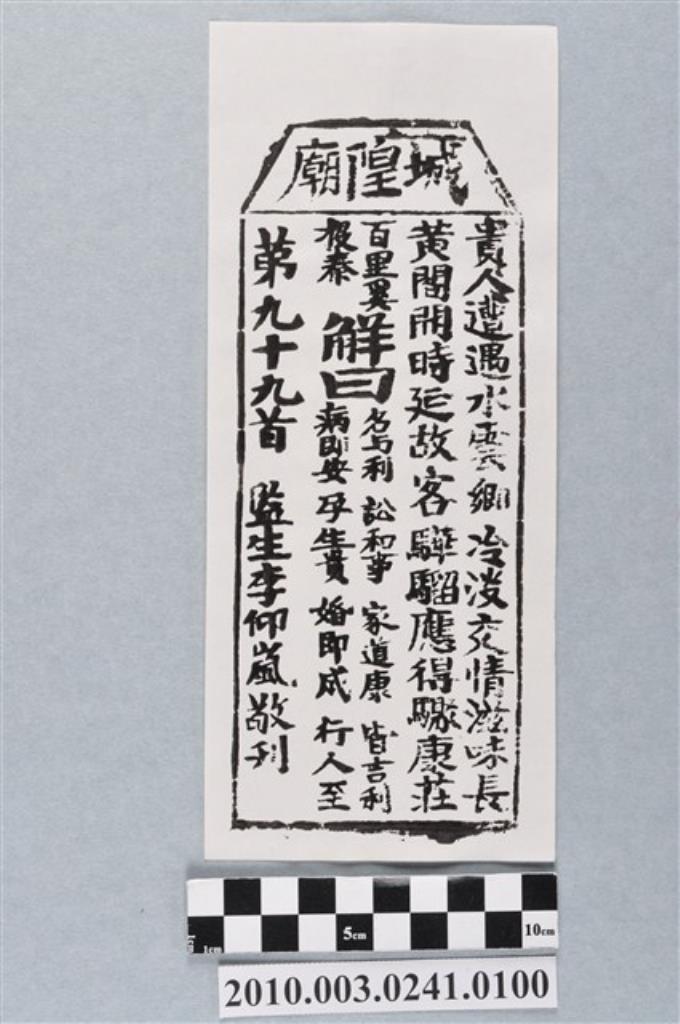 城隍廟
貴人遭遇水雲鄉 冷淡交情滋味長
黃閣開時延故客 驊騮應得驟康莊
百里奚投秦
解曰
名與利 訟和事 家道康 皆吉利
病即安 孕生貴 婚即成 行人至
第九十九首 監生李仰嵐敬刊
1cm
5cm
10cm
2010.003.0241.0100